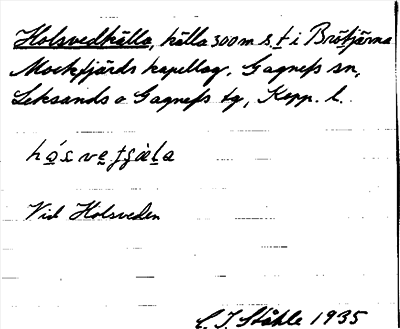 Holsvedkälla, källa 300 m s. t i Brötjärna
Mockfjärds kapellag, Gagnefs sn,
Leksands o Gagnefs tg, Kopp. l.
Vid Holsveden
C. I. Ståhle 1935